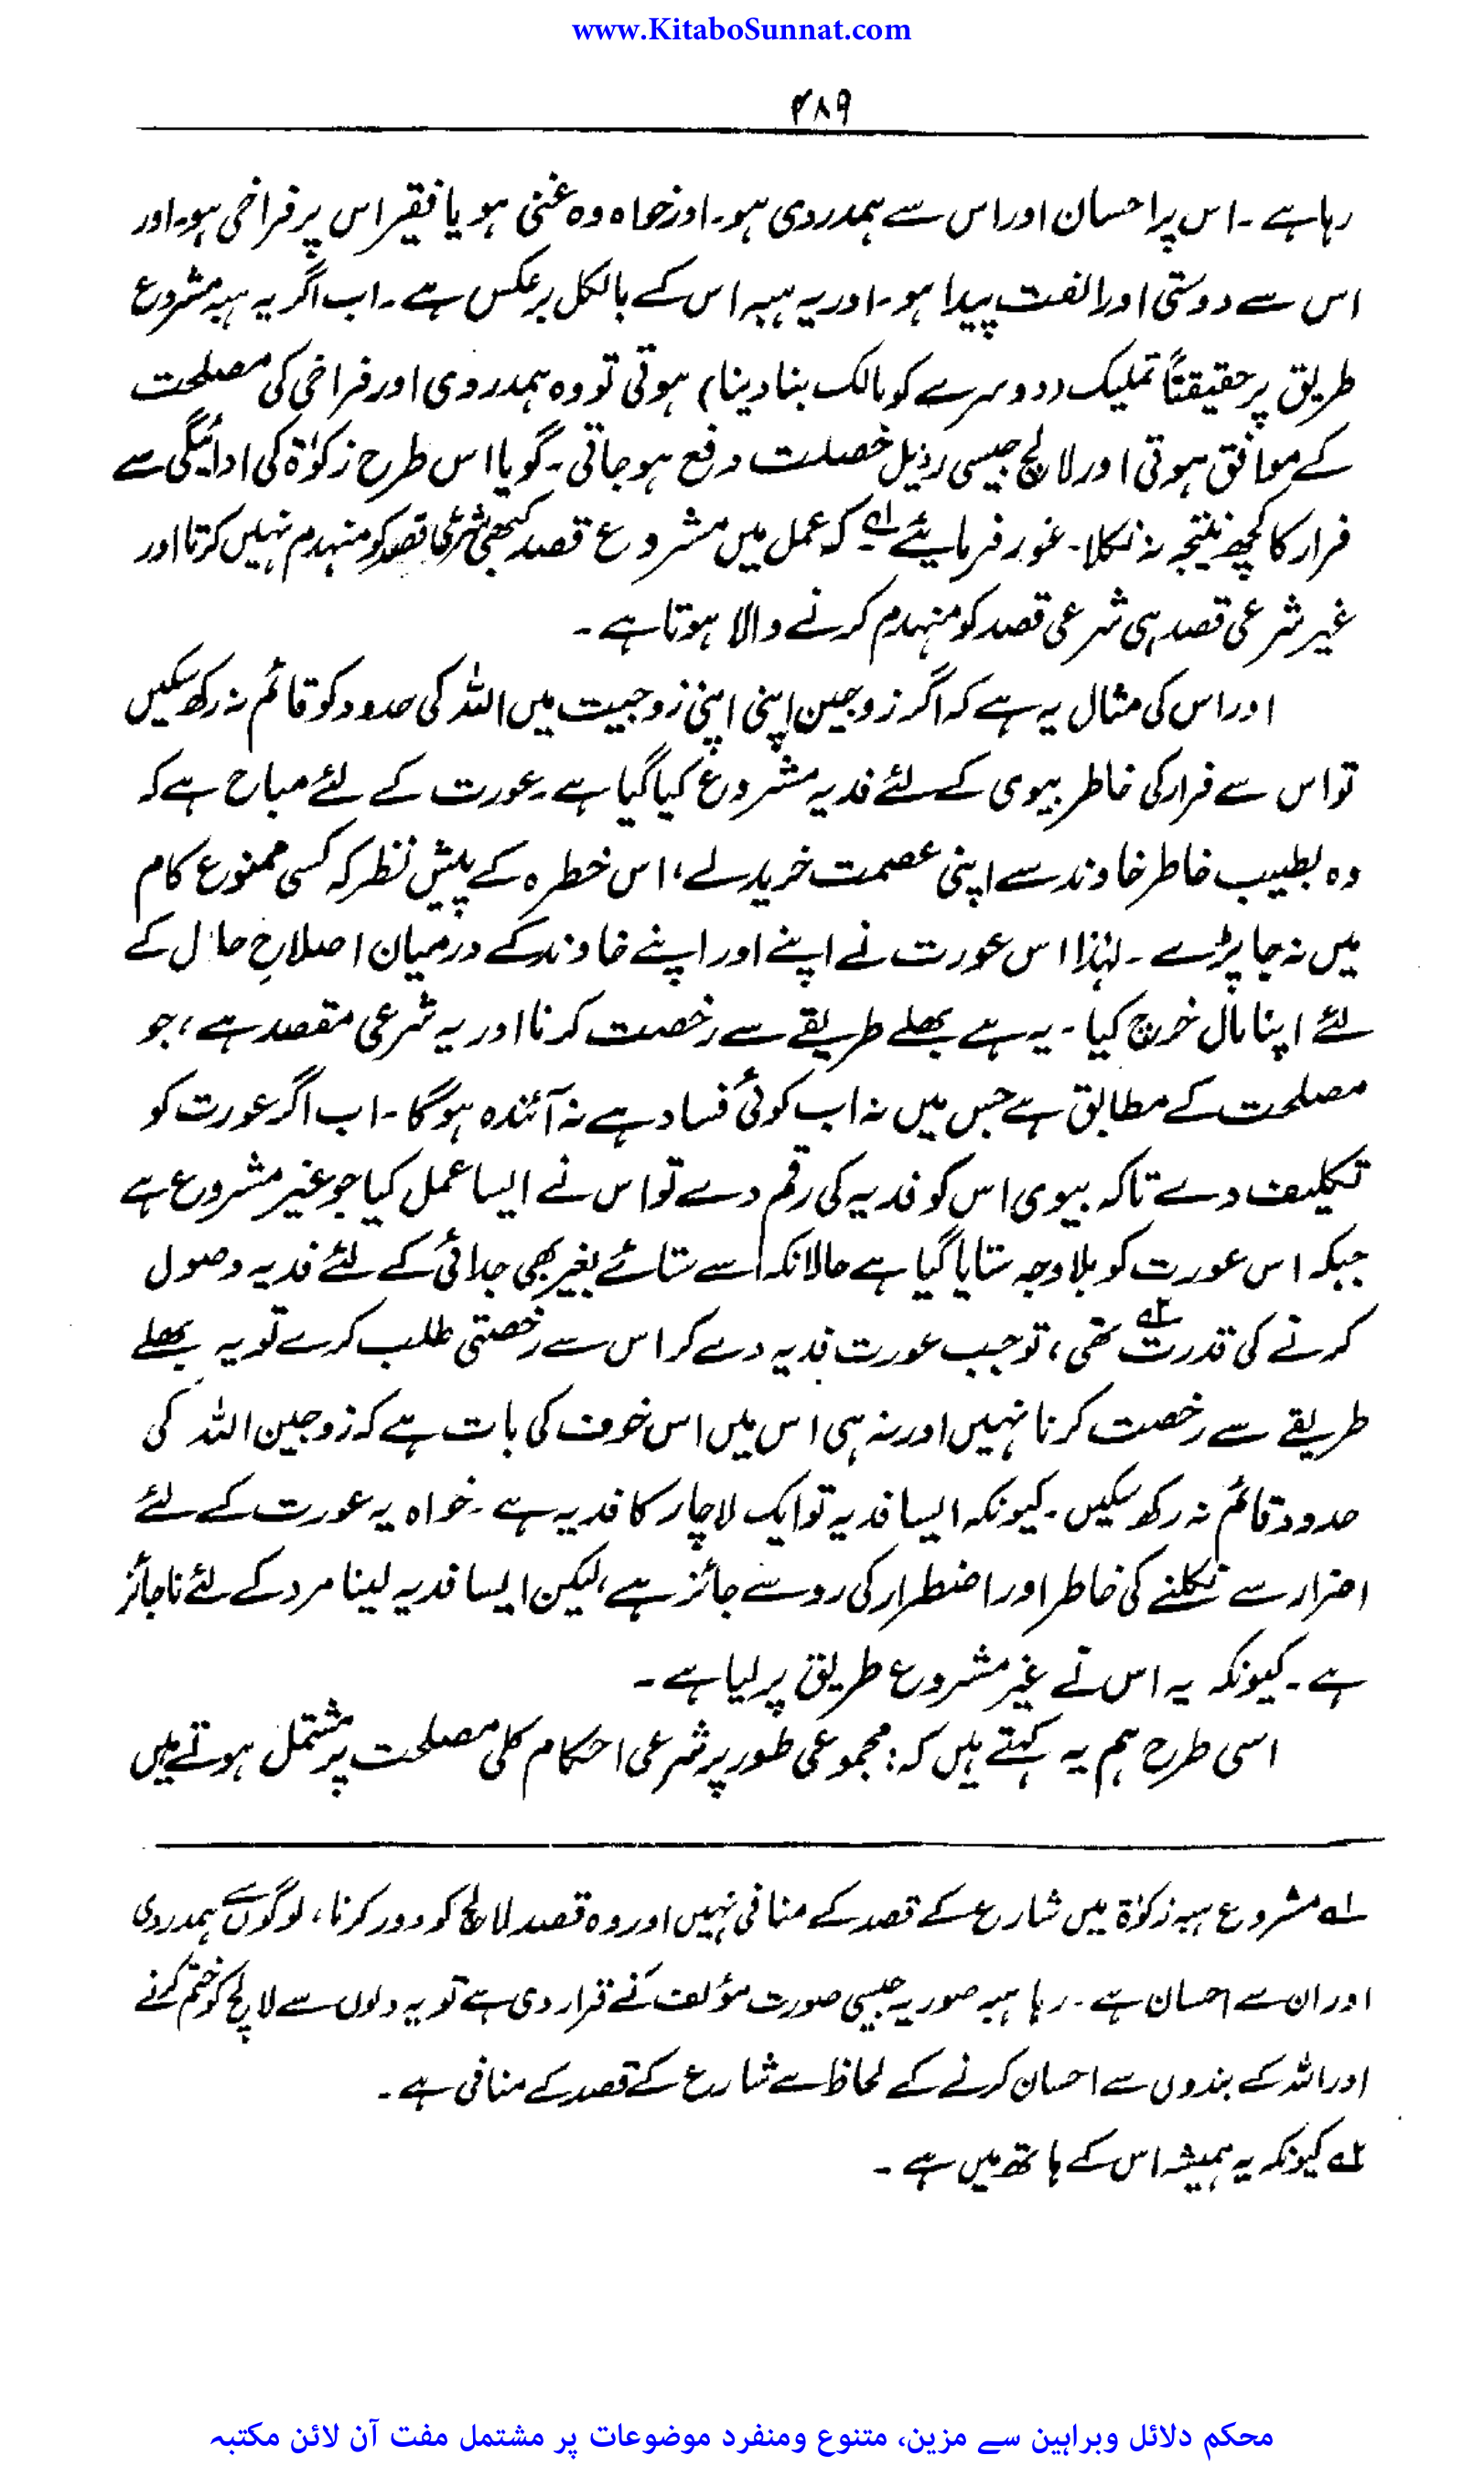 www.KitaboSunnat.com
۴۸۹
رہا ہے ۔ اس پر احسان اور اس سے ہمدردی ہو ۔ اور خواہ وہ غنی ہو یا فقیر اس پر فراخی ہو ۔ اور
اس سے دوستی اور الفت پیدا ہو ۔ اور یہ ہبہ اس کے بالکل برعکس ہے ۔ اب اگر یہ ہبہ مشروع
طریق پر حقیقتاً تملیک (دوسرے کو مالک بنا دینا) ہوتی تو وہ ہمدردی اور فراخی کی مصلحت
کے موافق ہوتی اور لالچ جیسی رذیل خصلت رفع ہو جاتی ۔ گویا اس طرح زکوٰۃ کی ادائیگی سے
فرار کا کچھ نتیجہ نہ نکلا ۔ غور فرمائیے لہ کہ عمل میں مشروع قصد کبھی شرعی قصد کو منہدم نہیں کرتا اور
غیر شرعی قصد ہی شرعی قصد کو منہدم کرنے والا ہوتا ہے ۔
اور اس کی مثال یہ ہے کہ اگر زوجین اپنی اپنی زوجیت میں اللہ کی حدود کو قائم نہ رکھ سکیں
تو اس سے فرار کی خاطر بیوی کے لئے فدیہ مشروع کیا گیا ہے ۔ عورت کے لئے مباح ہے کہ
وہ بطیب خاطر خاوند سے اپنی عصمت خرید لے ، اس خطرہ کے پیش نظر کہ کسی ممنوع کام
میں نہ جا پڑے ۔ لہٰذا اس عورت نے اپنے اور اپنے خاوند کے درمیان اصلاحِ حال کے
لئے اپنا مال خرچ کیا ۔ یہ ہے بھلے طریقے سے رخصت کرنا اور یہ شرعی مقصد ہے ، جو
مصلحت کے مطابق ہے جس میں نہ اب کوئی فساد ہے نہ آئندہ ہوگا ۔ اب اگر عورت کو
تکلیف دے تاکہ بیوی اس کو فدیہ کی رقم دے تو اس نے ایسا عمل کیا جو غیر مشروع ہے
جبکہ اس عورت کو بلا وجہ ستایا گیا ہے حالانکہ اسے ستائے بغیر بھی جدائی کے لئے فدیہ وصول
کرنے کی قدرت ۲ہ تھی ، تو جب عورت فدیہ دے کر اس سے رخصتی طلب کرے تو یہ بھلے
طریقے سے رخصت کرنا نہیں اور نہ ہی اس میں اس خوف کی بات ہے کہ زوجین اللہ کی
حدود قائم نہ رکھ سکیں ۔ کیونکہ ایسا فدیہ تو ایک لاچار کا فدیہ ہے ۔ خواہ یہ عورت کے لئے
اضرار سے نکلنے کی خاطر اور اضطرار کی رو سے جائز ہے ، لیکن ایسا فدیہ لینا مرد کے لئے ناجائز
ہے ۔ کیونکہ یہ اس نے غیر مشروع طریق پر لیا ہے ۔
اسی طرح ہم یہ کہتے ہیں کہ : مجموعی طور پر شرعی احکام کلی مصلحت پر مشتمل ہوتے ہیں
لہ مشروع ہبہ زکوٰۃ میں شارع کے قصد کے منافی نہیں اور وہ قصد لالچ کو دور کرنا ، لوگوں سے ہمدردی
اور ان سے احسان ہے ۔ رہا ہبہ صوریہ جیسی صورت مؤلف نے قرار دی ہے تو یہ دلوں سے لالچ کو ختم کرنے
اور اللہ کے بندوں سے احسان کرنے کے لحاظ سے شارع کے قصد کے منافی ہے ۔
۲ہ کیونکہ یہ ہمیشہ اس کے ہاتھ میں ہے ۔
محکم دلائل وبراہین سے مزین، متنوع ومنفرد موضوعات پر مشتمل مفت آن لائن مکتبہ